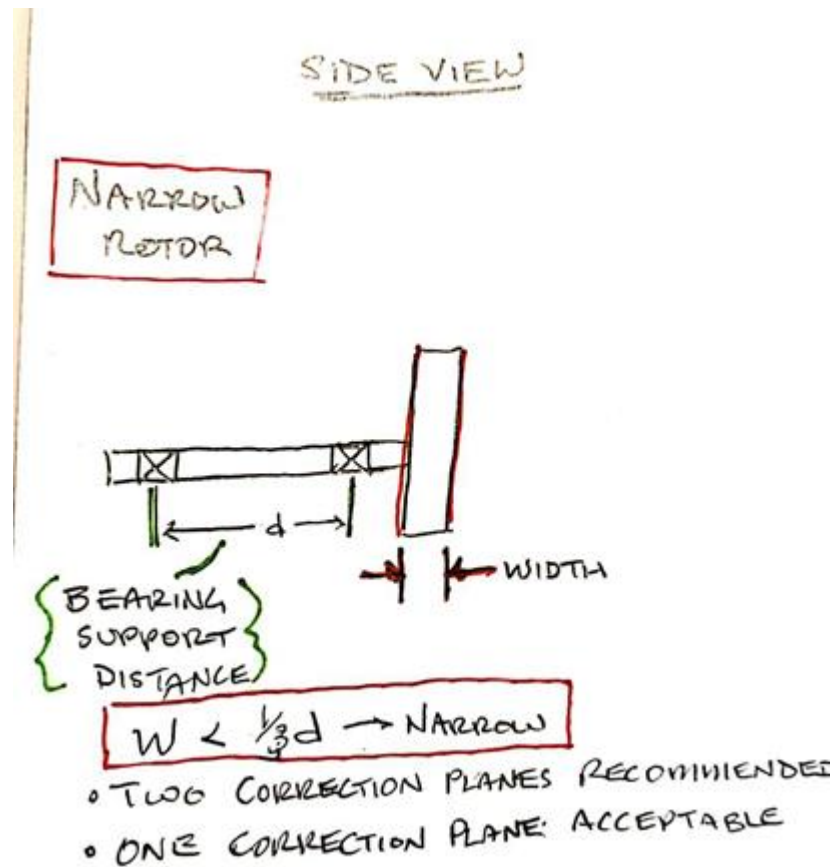 SIDE VIEW
NARROW
ROTOR
d
WIDTH
BEARING
SUPPORT
DISTANCE
W < 1/3 d → NARROW
• TWO CORRECTION PLANES RECOMMENDED
• ONE CORRECTION PLANE: ACCEPTABLE